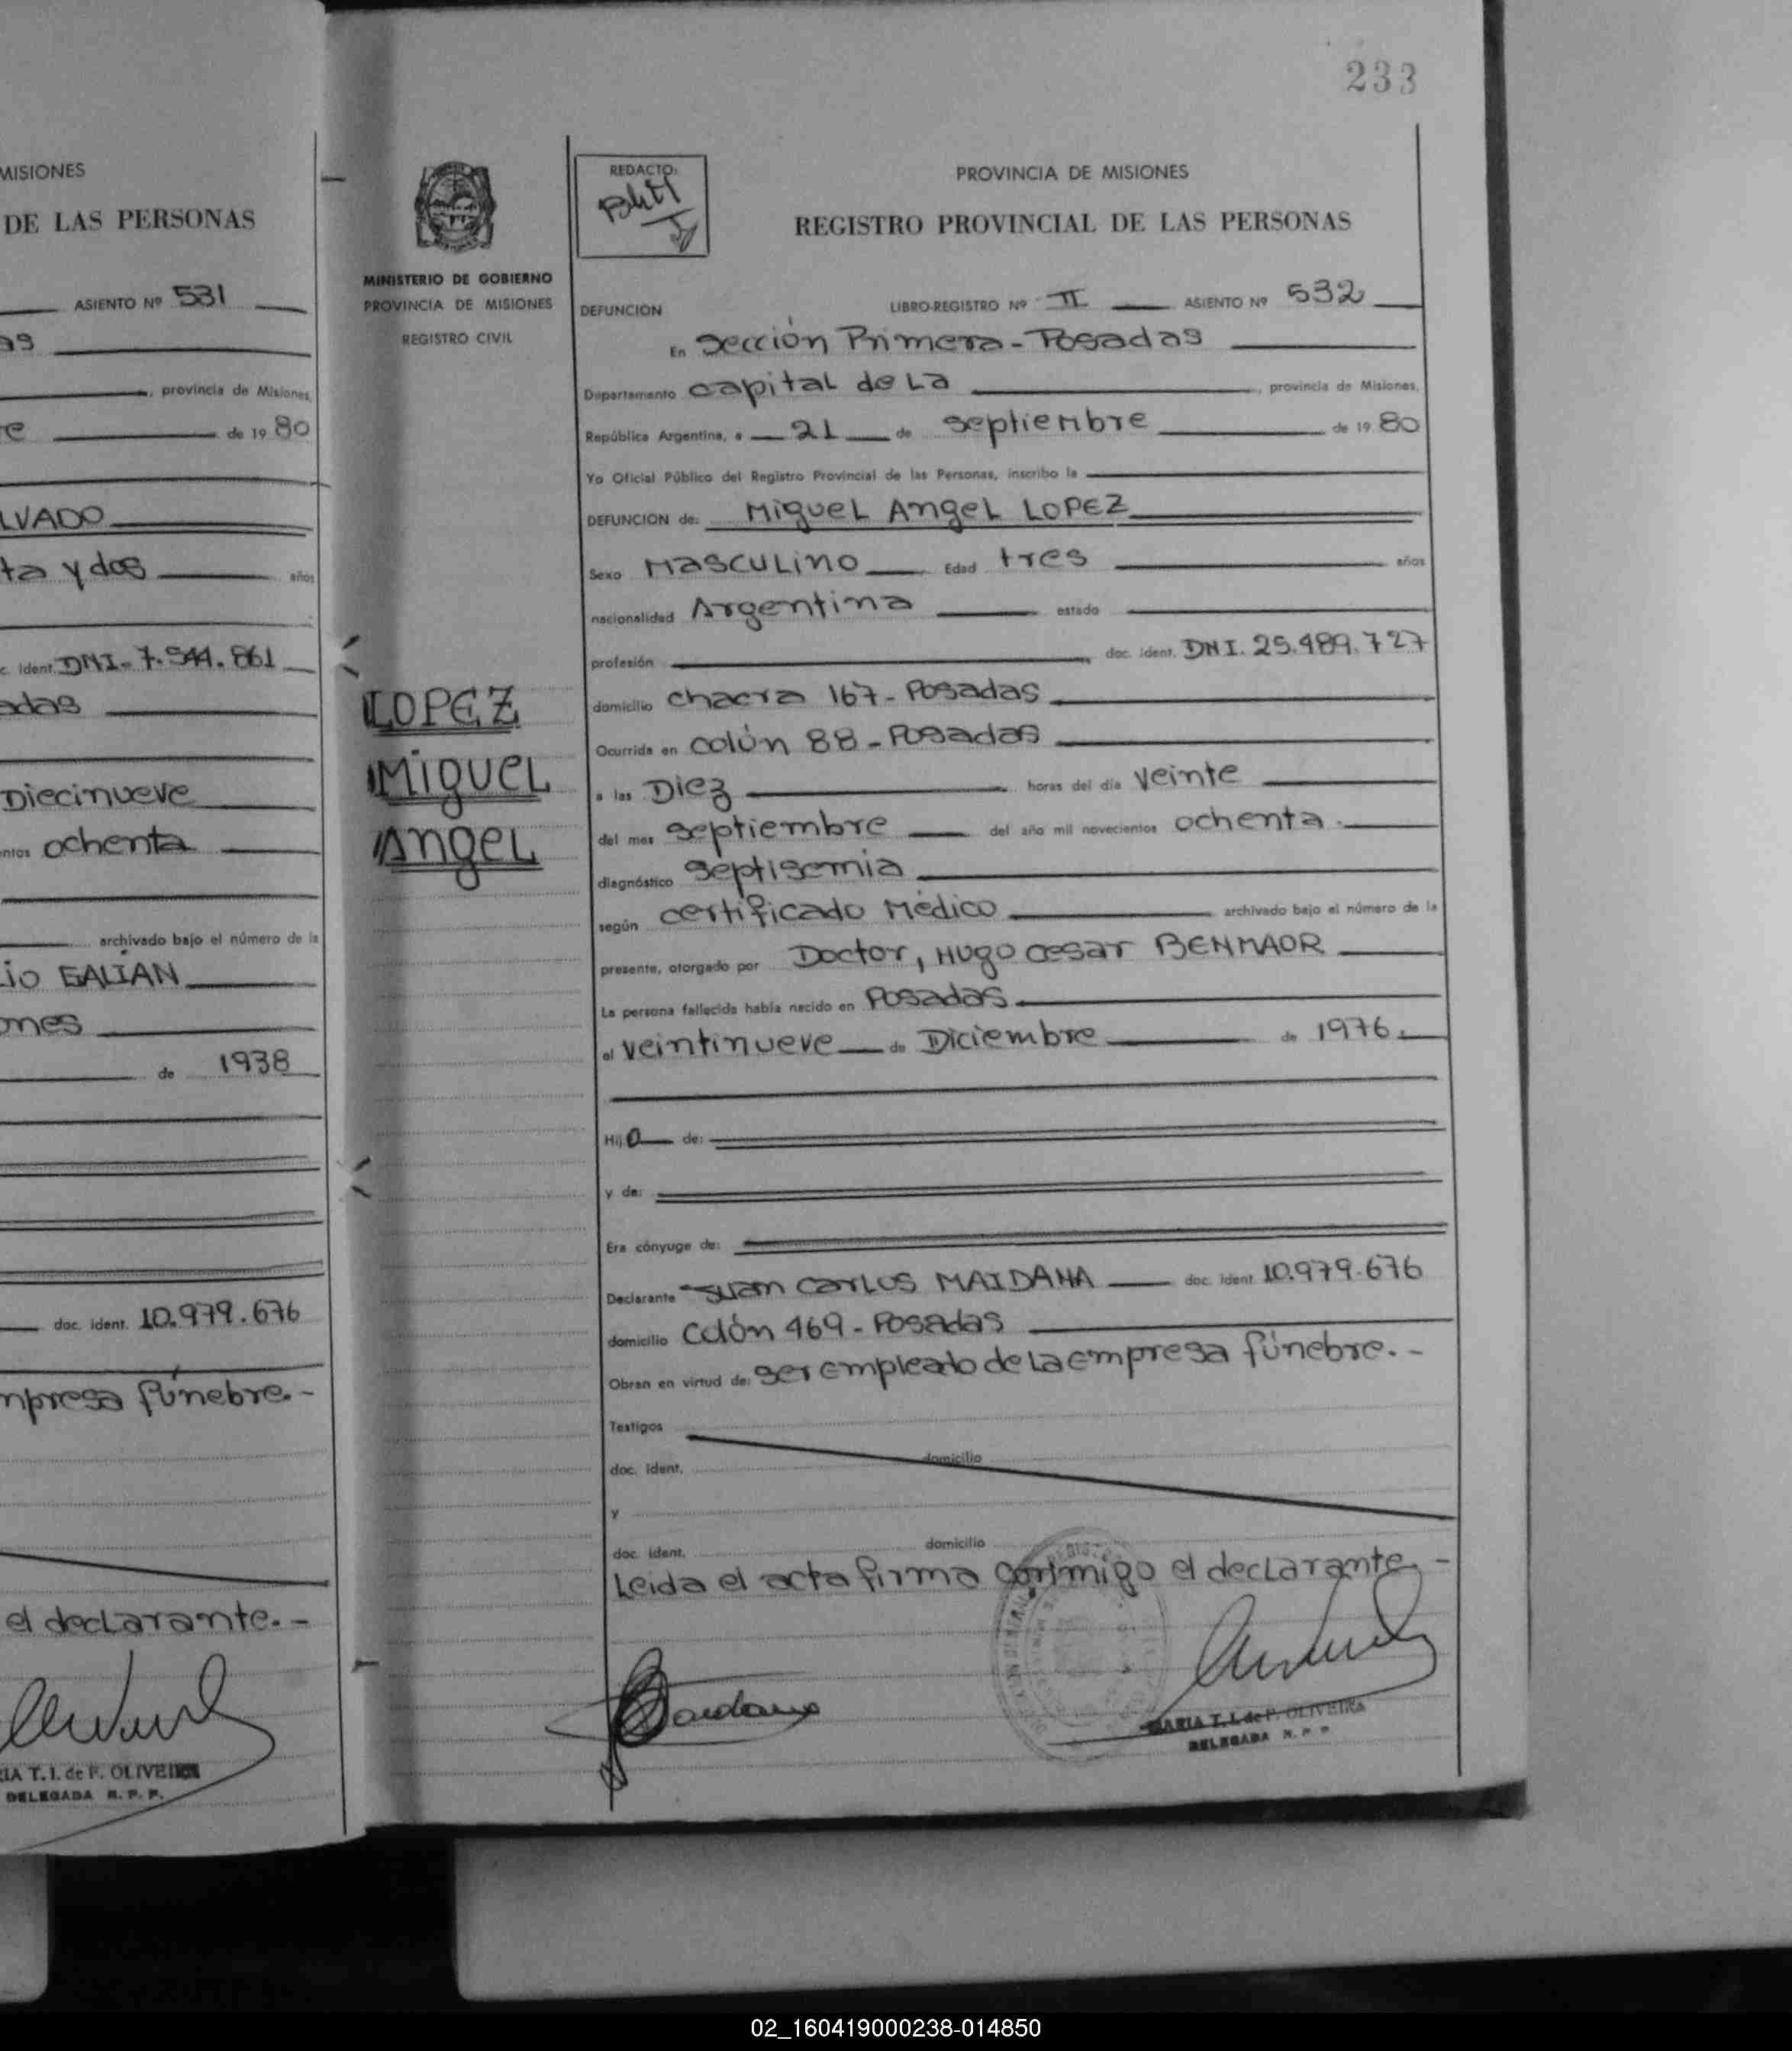 MISIONES
DE LAS PERSONAS
ASIENTO Nº 531
as
, provincia de Misiones,
re de 19 80
LVADO
ta y dos años
c. ident. DNI- 7.544.861
adas
Diecinueve
ntos ochenta
archivado bajo el número de la
Lio GALIAN
ones
de 1938
doc. ident. 10.979.676
mpresa fúnebre.-
el declarante.-
RIA T. I. de P. OLIVEIRA
DELEGADA R. P. P.
233
MINISTERIO DE GOBIERNO
PROVINCIA DE MISIONES
REGISTRO CIVIL
LOPEZ
Miguel
Angel
REDACTO:
PROVINCIA DE MISIONES
REGISTRO PROVINCIAL DE LAS PERSONAS
DEFUNCION LIBRO-REGISTRO Nº II ASIENTO Nº 532
En Sección Primera - Posadas
Departamento capital de La , provincia de Misiones,
República Argentina, a 21 de septiembre de 19 80
Yo Oficial Público del Registro Provincial de las Personas, inscribo la
DEFUNCION de: Miguel Angel LOPEZ
Sexo Masculino Edad tres años
nacionalidad Argentina estado
profesión doc. ident. DNI. 25.489.727
domicilio chacra 167- Posadas
Ocurrida en colón 88 - Posadas
a las Diez horas del día veinte
del mes septiembre del año mil novecientos ochenta.
diagnóstico septisemia
según certificado Médico archivado bajo el número de la
presente, otorgado por Doctor, Hugo cesar BENMAOR
La persona fallecida había nacido en Posadas
el veintinueve de Diciembre de 1976.
Hijo de:
y de:
Era cónyuge de:
Declarante Juan carlos MAIDANA doc. ident. 10.979.676
domicilio Colón 469 - Posadas
Obran en virtud de: ser empleado de la empresa fúnebre.-
Testigos
doc. ident. domicilio
y
doc. ident. domicilio
Leida el acta firma conmigo el declarante.-
MARIA T. I. de P. OLIVEIRA
DELEGADA R. P. P.
02_160419000238-014850